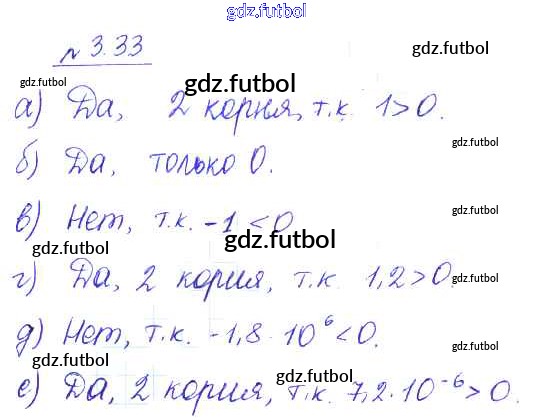 gdz.futbol
№ 3.33
gdz.futbol
gdz.futbol
gdz.futbol
а) Да, 2 корня, т.к. 1>0.
gdz.futbol
б) Да, только 0.
gdz.futbol
в) Нет, т.к. -1<0
gdz.futbol
gdz.futbol
г) Да, 2 корня, т.к. 1,2>0.
gdz.futbol
д) Нет, т.к. -1,8·10⁶<0.
gdz.futbol
gdz.futbol
gdz.futbol
е) Да, 2 корня, т.к. 7,2·10⁻⁶>0.